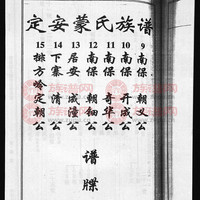 定安蒙氏族谱
9 南保 朝义公
10 南保 开成公
11 南保 奇华公
12 南保 朝钿公
13 居安 成公
14 下寨 清公
15 排方岭定朝公
谱牒